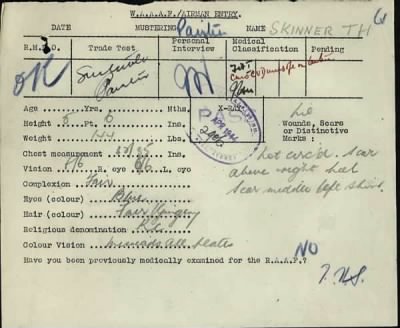 W.A.A.A.F./AIRMAN ENTRY.
DATE MUSTERING Painter NAME SKINNER TH
R.M.S.O. Trade Test Personal Interview Medical Classification Pending
OK Suitable Painter
Age Yrs. Mths. X-RAY
Height 5 6 Ins.
Weight 144
Wounds, Scars or Distinctive Marks :
Chest measurement 33/35 Ins.
Vision 6/6 R. eye 6/6 L. eye
not circ'd. Scar above right heel
Scar middle left shin.
Complexion Fair
Eyes (colour) Blue
Hair (colour) Fair
Religious denomination
Colour Vision reads all plates
Have you been previously medically examined for the R.A.A.F.? NO
T.H.S.